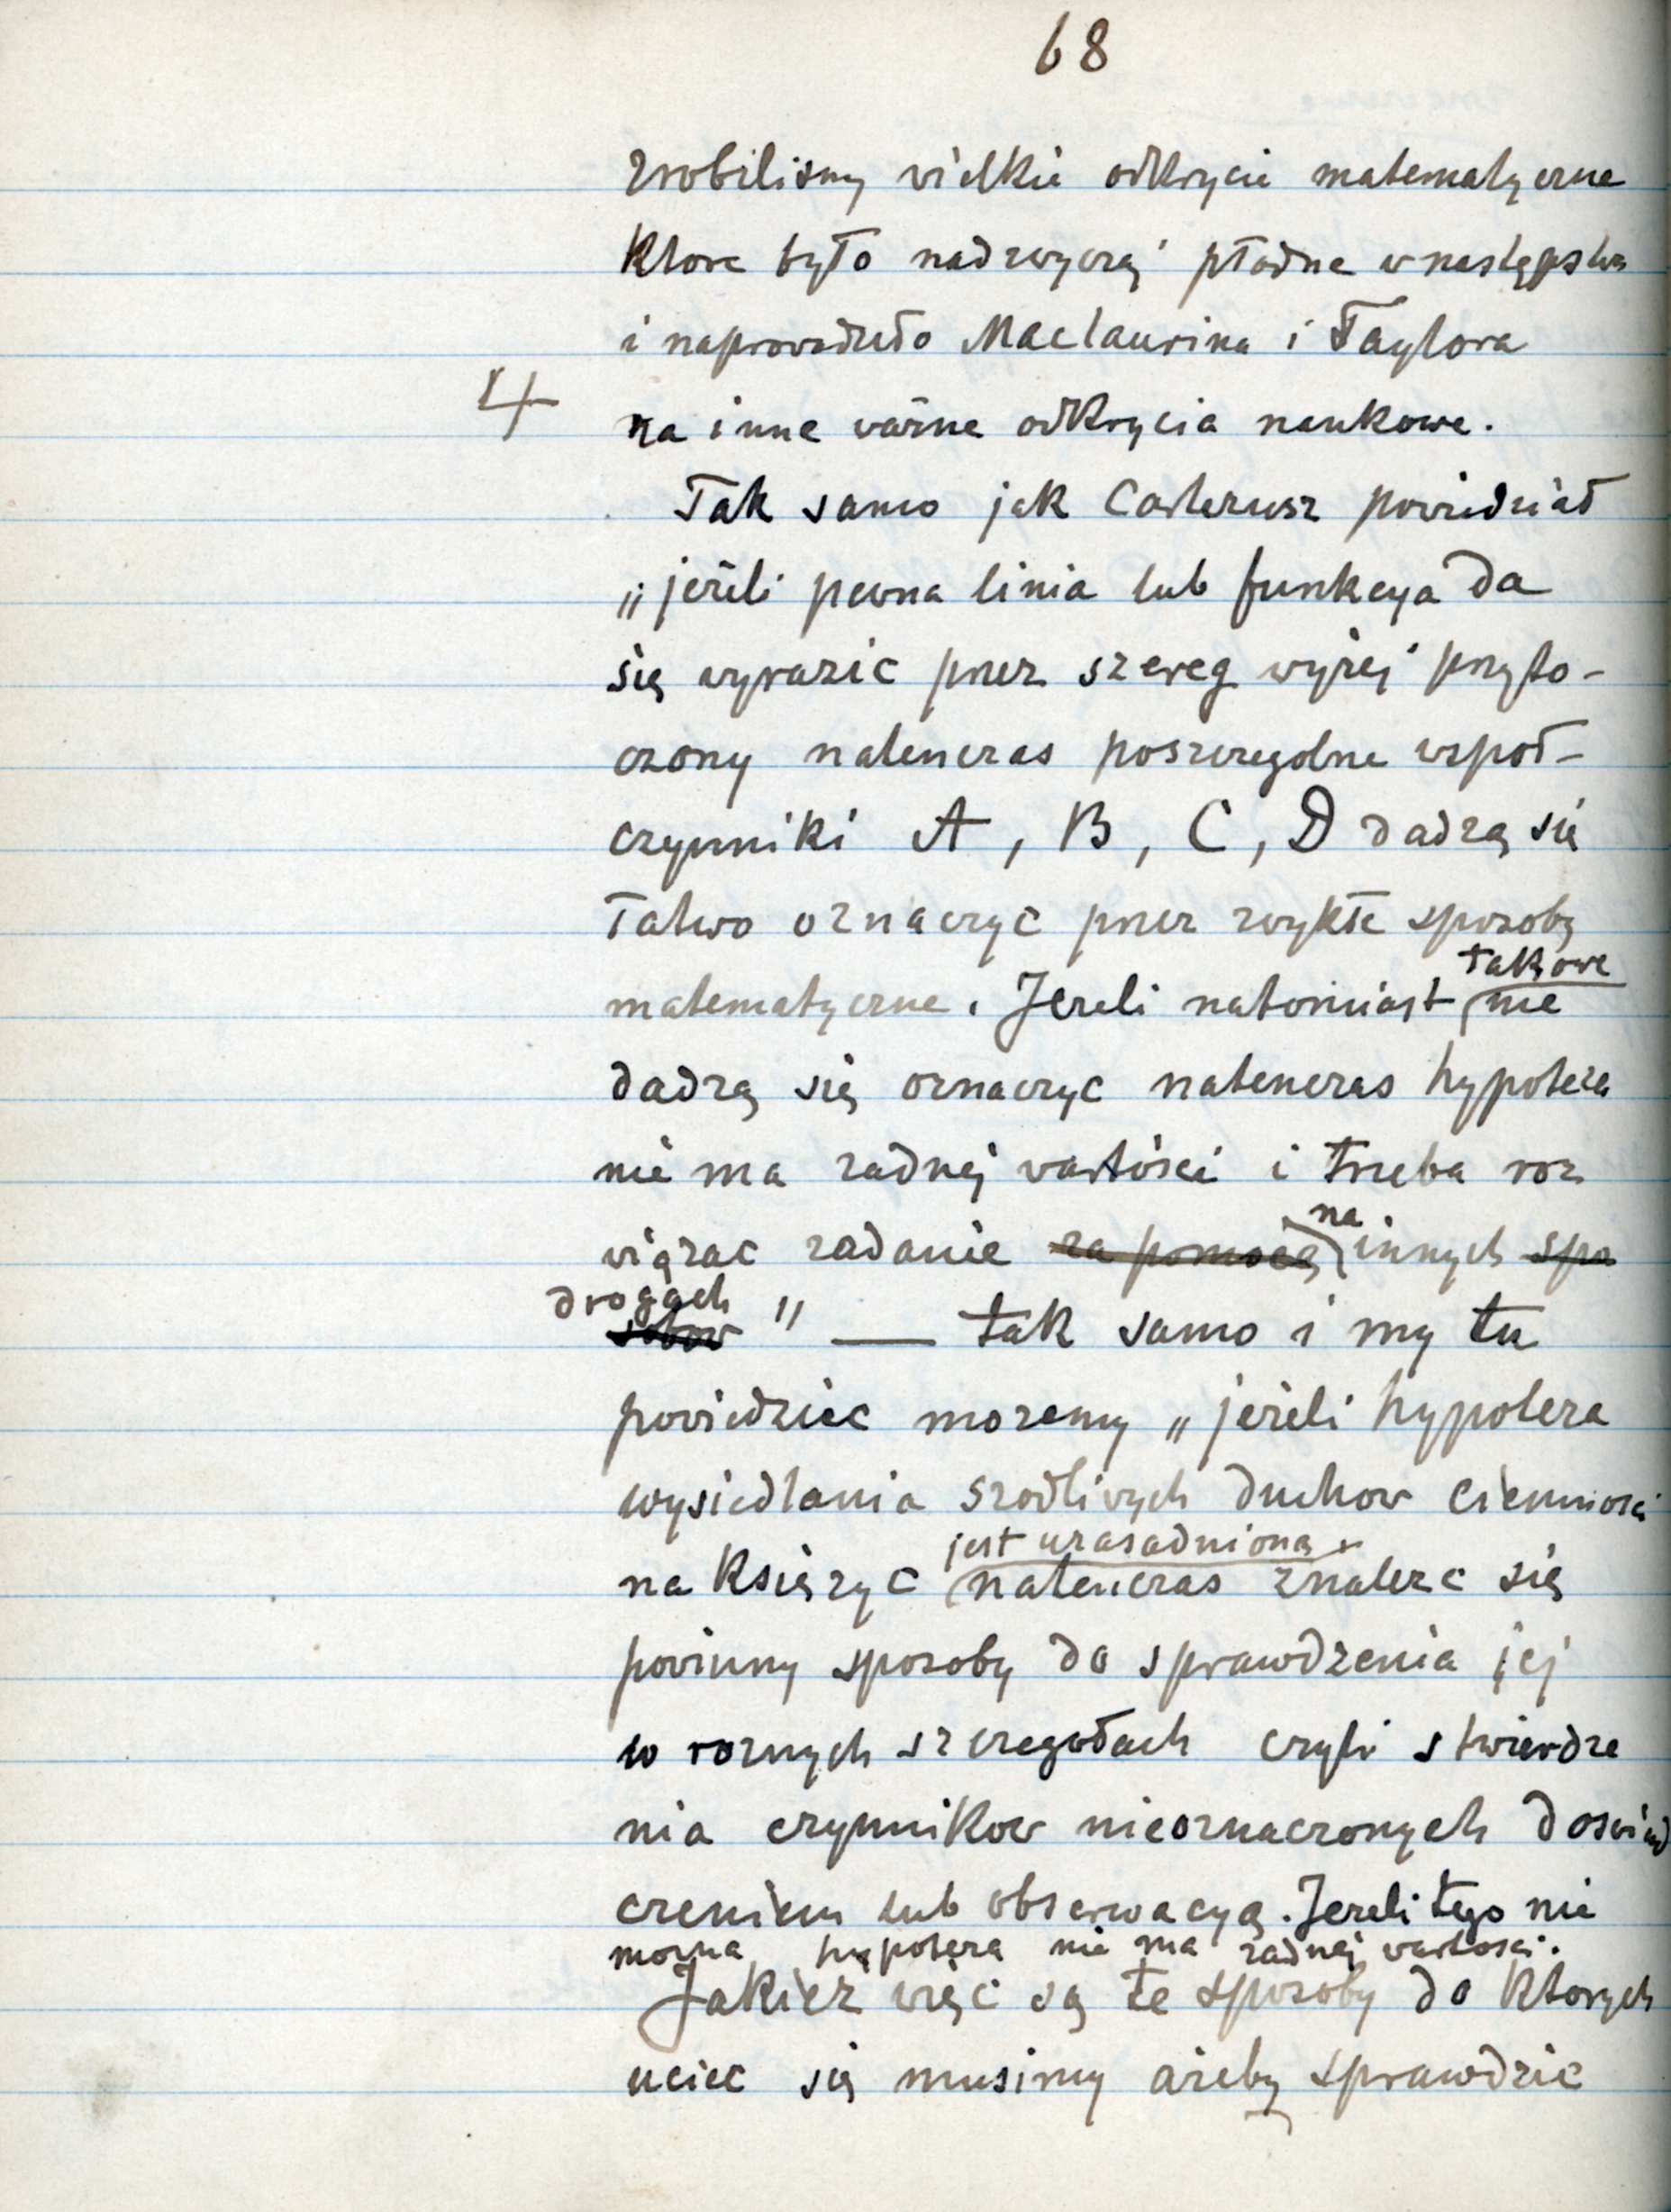 68
zrobilismy wielkie odkrycie matematyczne
ktore było nadzwyczaj płodne w następstwa
i naprowadziło Maclaurina i Taylora
4
na inne ważne odkrycia naukowe.
Tak samo jak Carteziusz powiedział
„jeżeli pewna linia lub funkcya da
się wyrazic przez szereg wyżej przyto-
czony natenczas poszczegolne wspoł-
czynniki A, B, C, D dadzą się
łatwo oznaczyc przez zwykłe sposoby
takowe
matematyczne. Jezeli natomiast nie
dadzą się oznaczyc natenczas hypoteza
nie ma zadnej wartości i trzeba roz
na
wiązac zadanie za pomocą innych spo
drogach
sobow" — tak samo i my tu
powiedziec mozemy „jeżeli hypoteza
wysiedlania szodliwych duchow ciemnosci
jest uzasadnioną
na Księzyc natenczas znalezc się
powinny sposoby do sprawdzenia jej
w roznych szczegołach czyli stwierdze
nia czynnikow nieoznaczonych doswiad
czeniem lub obserwacyą. Jezeli tego nie
mozna hypoteza nie ma zadnej wartosci.
Jakiez więc są te sposoby do ktorych
uciec się musimy ażeby sprawdzic